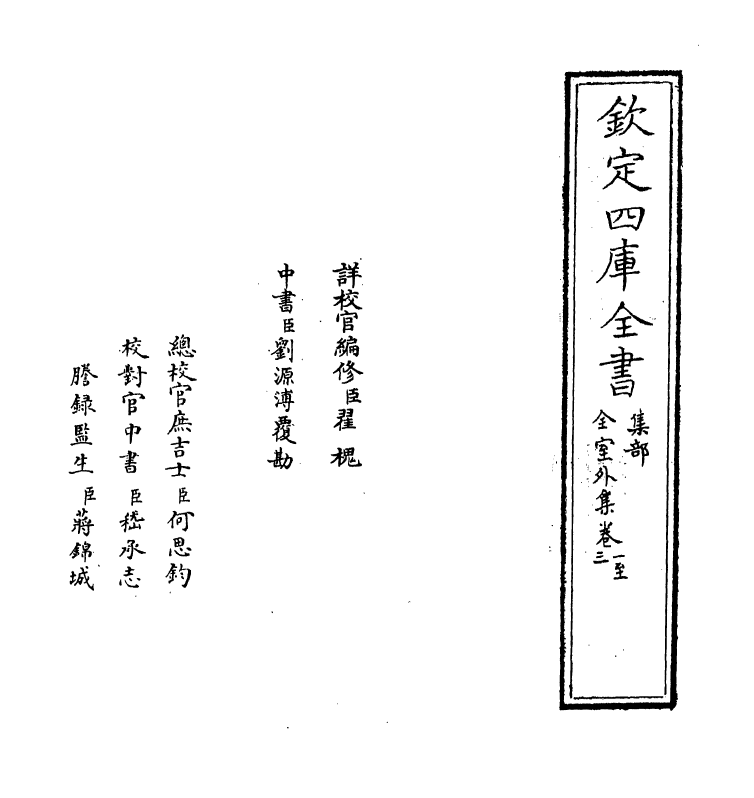 欽定四庫全書
集部
全室外集卷一至三
詳校官編修臣翟槐
中書臣劉源溥覆勘
總校官庶吉士臣何思鈞
校對官中書臣嵇承志
謄録監生臣蔣錦城